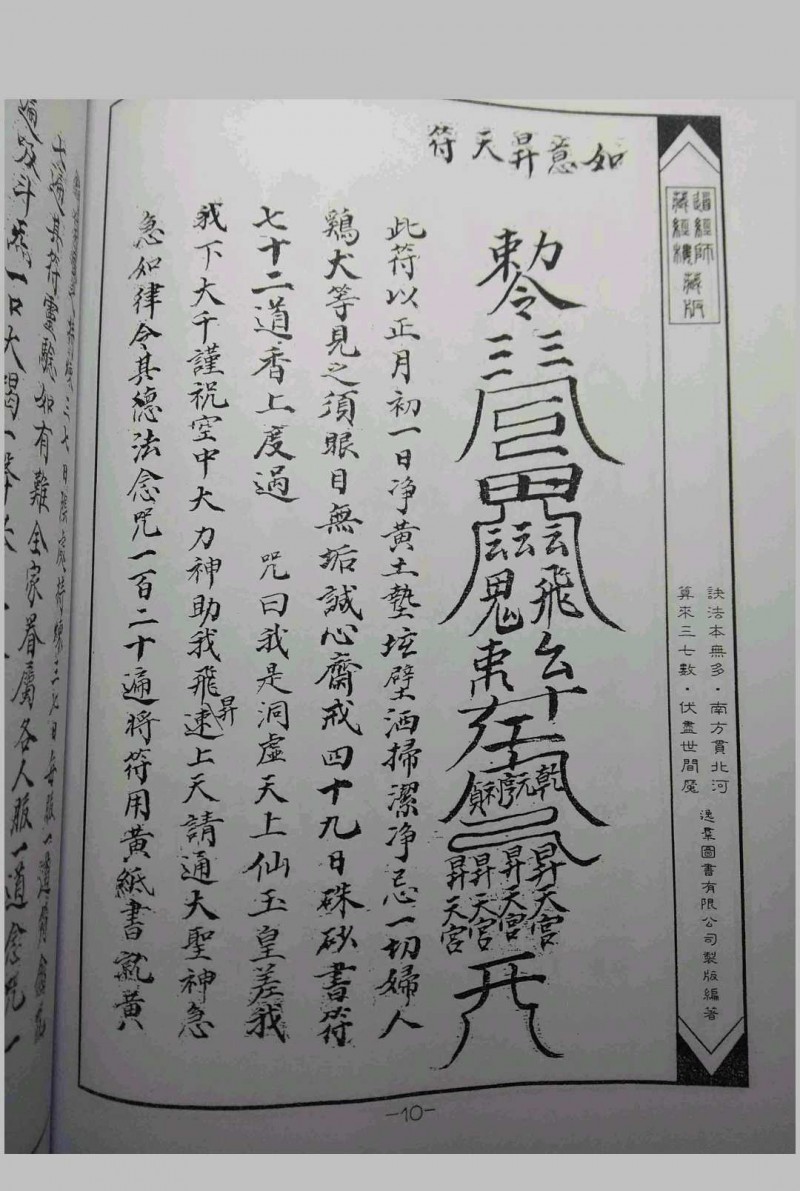 道經師
藏經樓藏版
訣法本無多·南方貫北河
算來三七數·伏盡世間魔
逸羣圖書有限公司製版編著
如意昇天符
勅令
三三
云云云
飛
鬼
乾元亨利貞
昇天宮
昇天宮
昇天宮
昇天宮
此符以正月初一日净黄土墊坛壁洒掃潔净忌一切婦人
鷄犬等見之須眼目無垢誠心齋戒四十九日硃砂書符
七十二道香上度過 咒曰我是洞虛天上仙玉皇差我
我下大千謹祝空中大力神助我飛昇速上天請通大聖神急
急如律令其德法念咒一百二十遍將符用黄紙書就黄
-10-
十遍其符靈驗如有難全家眷屬各人服一道念咒一